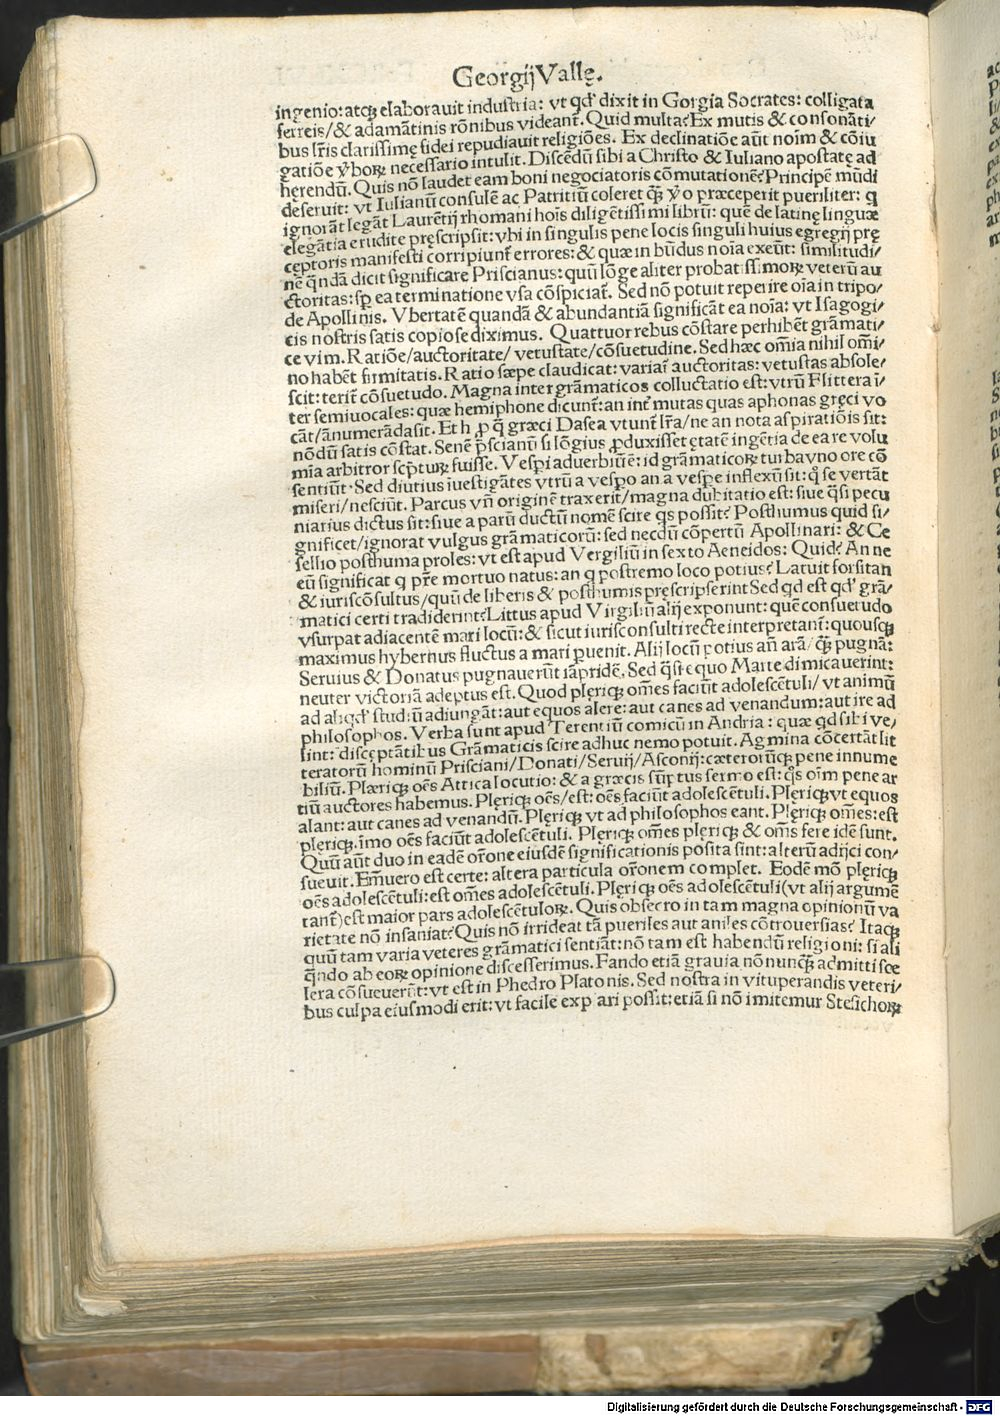 Georgij Vallę.
ingenio: atqꝫ elaborauit industria: vt qd̛ dixit in Gorgia Socrates: colligata
ferreis/& adamātinis rōnibus videant̃. Quid multa? Ex mutis & consonāti/
bus lr̃is clarissimę fidei repudiauit religiōes. Ex declinatiōe aūt noīm & cōiu
gatiōe ꝟboꝝ necessario intulit. Discēdū sibi a Christo & Iuliano apostatę ad
hęrendū. Quis nō laudet eam boni negociatoris cōmutationē? Principē mūdi
deseruit: vt Iulianū consulē ac Patritiū coleret
ignorāt legāt Laurētij rhomani hoīs diligētissimi librū: quē de latinę linguæ
elegātia erudite pręscripsit: vbi in singulis pene locis singuli huius egregij prę
ceptoris manifesti corripiunt̃ errores: & quæ in būdus noīa exeūt: similitudi/
nē q̄ndā dicit significare Priscianus: quū lōge aliter probatissimoꝝ veterū au
ctoritas: sꝑ ea terminatione vsa cōspiciat̃. Sed nō potuit reperire oīa in tripo/
de Apollinis. Vbertatē quandā & abundantiā significāt ea noīa: vt Isagogi/
cis nostris satis copiose diximus. Quattuor rebus cōstare perhibēt grāmati/
ce vim. Ratiōe/auctoritate/ vetustate/cōsuetudine. Sed hæc omīa nihil omī/
no habēt firmitatis. Ratio sæpe claudicat: variat̃ auctoritas: vetustas absole/
scit: terit̃ cōsuetudo. Magna inter grāmaticos colluctatio est: vtrū F littera ī/
ter semiuocales: quæ hemiphone dicunt̃: an int̃ mutas quas aphonas gręci vo
cāt/ānumerāda sit. Et h ꝓ q̄ græci Dasea vtunt̃ lr̃a/ne an nota aspiratiōis sit:
nōdū satis cōstat. Senē p̄scianū si lōgius ꝓduxisset ętatē ingētia de ea re volu
mīa arbitror scp̄turꝝ fuisse. Vesꝑi aduerbiū ē: id grāmaticoꝝ turba vno ore cō
sentiūt. Sed diutius iuestigātes vtrū a vesꝑo an a vesꝑe inflexū sit: q̊ se vertāt
miseri/nesciūt. Parcus vñ originē traxerit/magna dubitatio est: siue q̄si pecu
niarius dictus sit: siue a parū ductū nomē scire q̇s possit? Posthumus quid si/
gnificet/ignorat vulgus grāmaticorū: sed necdū cōpertū Apollinari: & Ce
sellio posthuma proles: vt est apud Vergiliū in sexto Aeneidos: Quid? An ne
eū significat q pr̃e mortuo natus: an q postremo loco potius? Latuit forsitan
& iuriscōsultus/quū de liberis & posthumis pręscripserint Sed qd est qd̛ grā/
matici certi tradiderint? Littus apud Virgiliū alij exponunt: quē consuetudo
vsurpat adiacentē mari locū: & sicut iurisconsulti recte interpretant̃: quousqꝫ
maximus hybernus fluctus a mari ꝑuenit. Alij locū potius añ arā/ pugnā:
Seruius & Donatus pugnauerūt iāpridē. Sed q̄ste quo Marte dimicauerint:
neuter victoriā adeptus est. Quod pleriqꝫ omēs faciūt adolescētuli/ vt animū
ad aliqd̛ studiū adiungāt: aut equos alere: aut canes ad venandum: aut ire ad
philosophos. Verba sunt apud Terentiū comicū in Andria: quæ qd sibi ve/
lint: disceptātibus Grāmaticis scire adhuc nemo potuit. Agmina cōcertāt lit
teratorū hominū Prisciani/Donati/Seruij/Asconij: cæterorūqꝫ pene innume
biliū. Plæriqꝫ oēs Attica locutio: & a græcis sūptus sermo est: q̊s oīm pene ar
tiū auctores habemus. Plęriqꝫ oēs/est: oēs faciūt adolescētuli. Plęriqꝫ vt equos
alant: aut canes ad venandū. Plęriqꝫ vt ad philosophos eant. Plęriqꝫ omēs: est
plęriqꝫ. īmo oēs faciūt adolescētuli. Plęriqꝫ omēs plęriqꝫ & omēs fere idē sunt.
Quū aūt duo in eadē or̃one eiusdē significationis posita sint: alterū adijci con/
sueuit. Em̄uero est certe: altera particula or̃onem complet. Eodē mō plęriqꝫ
oēs adolescētuli: est omēs adolescētuli. Plęriqꝫ oēs adolescētuli (vt alij argumē
tant̃) est maior pars adolescētuloꝝ. Quis obsecro in tam magna opinionū va
rietate nō insaniat? Quis nō irrideat tā pueriles aut aniles cōtrouersias? Itaqꝫ
quū tam varia veteres grāmatici sentiāt: nō tam est habendū religioni: si ali
q̄ndo ab eoꝝ opinione discesserimus. Fando etiā grauia nō nunqꝫ̃ admitti sce
lera cōsueuerūt: vt est in Phedro Platonis. Sed nostra in vituperandis veteri/
bus culpa eiusmodi erit: vt facile expiari possit: etiā si nō imitemur Stesichoꝝ
Digitalisierung gefördert durch die Deutsche Forschungsgemeinschaft - DFG